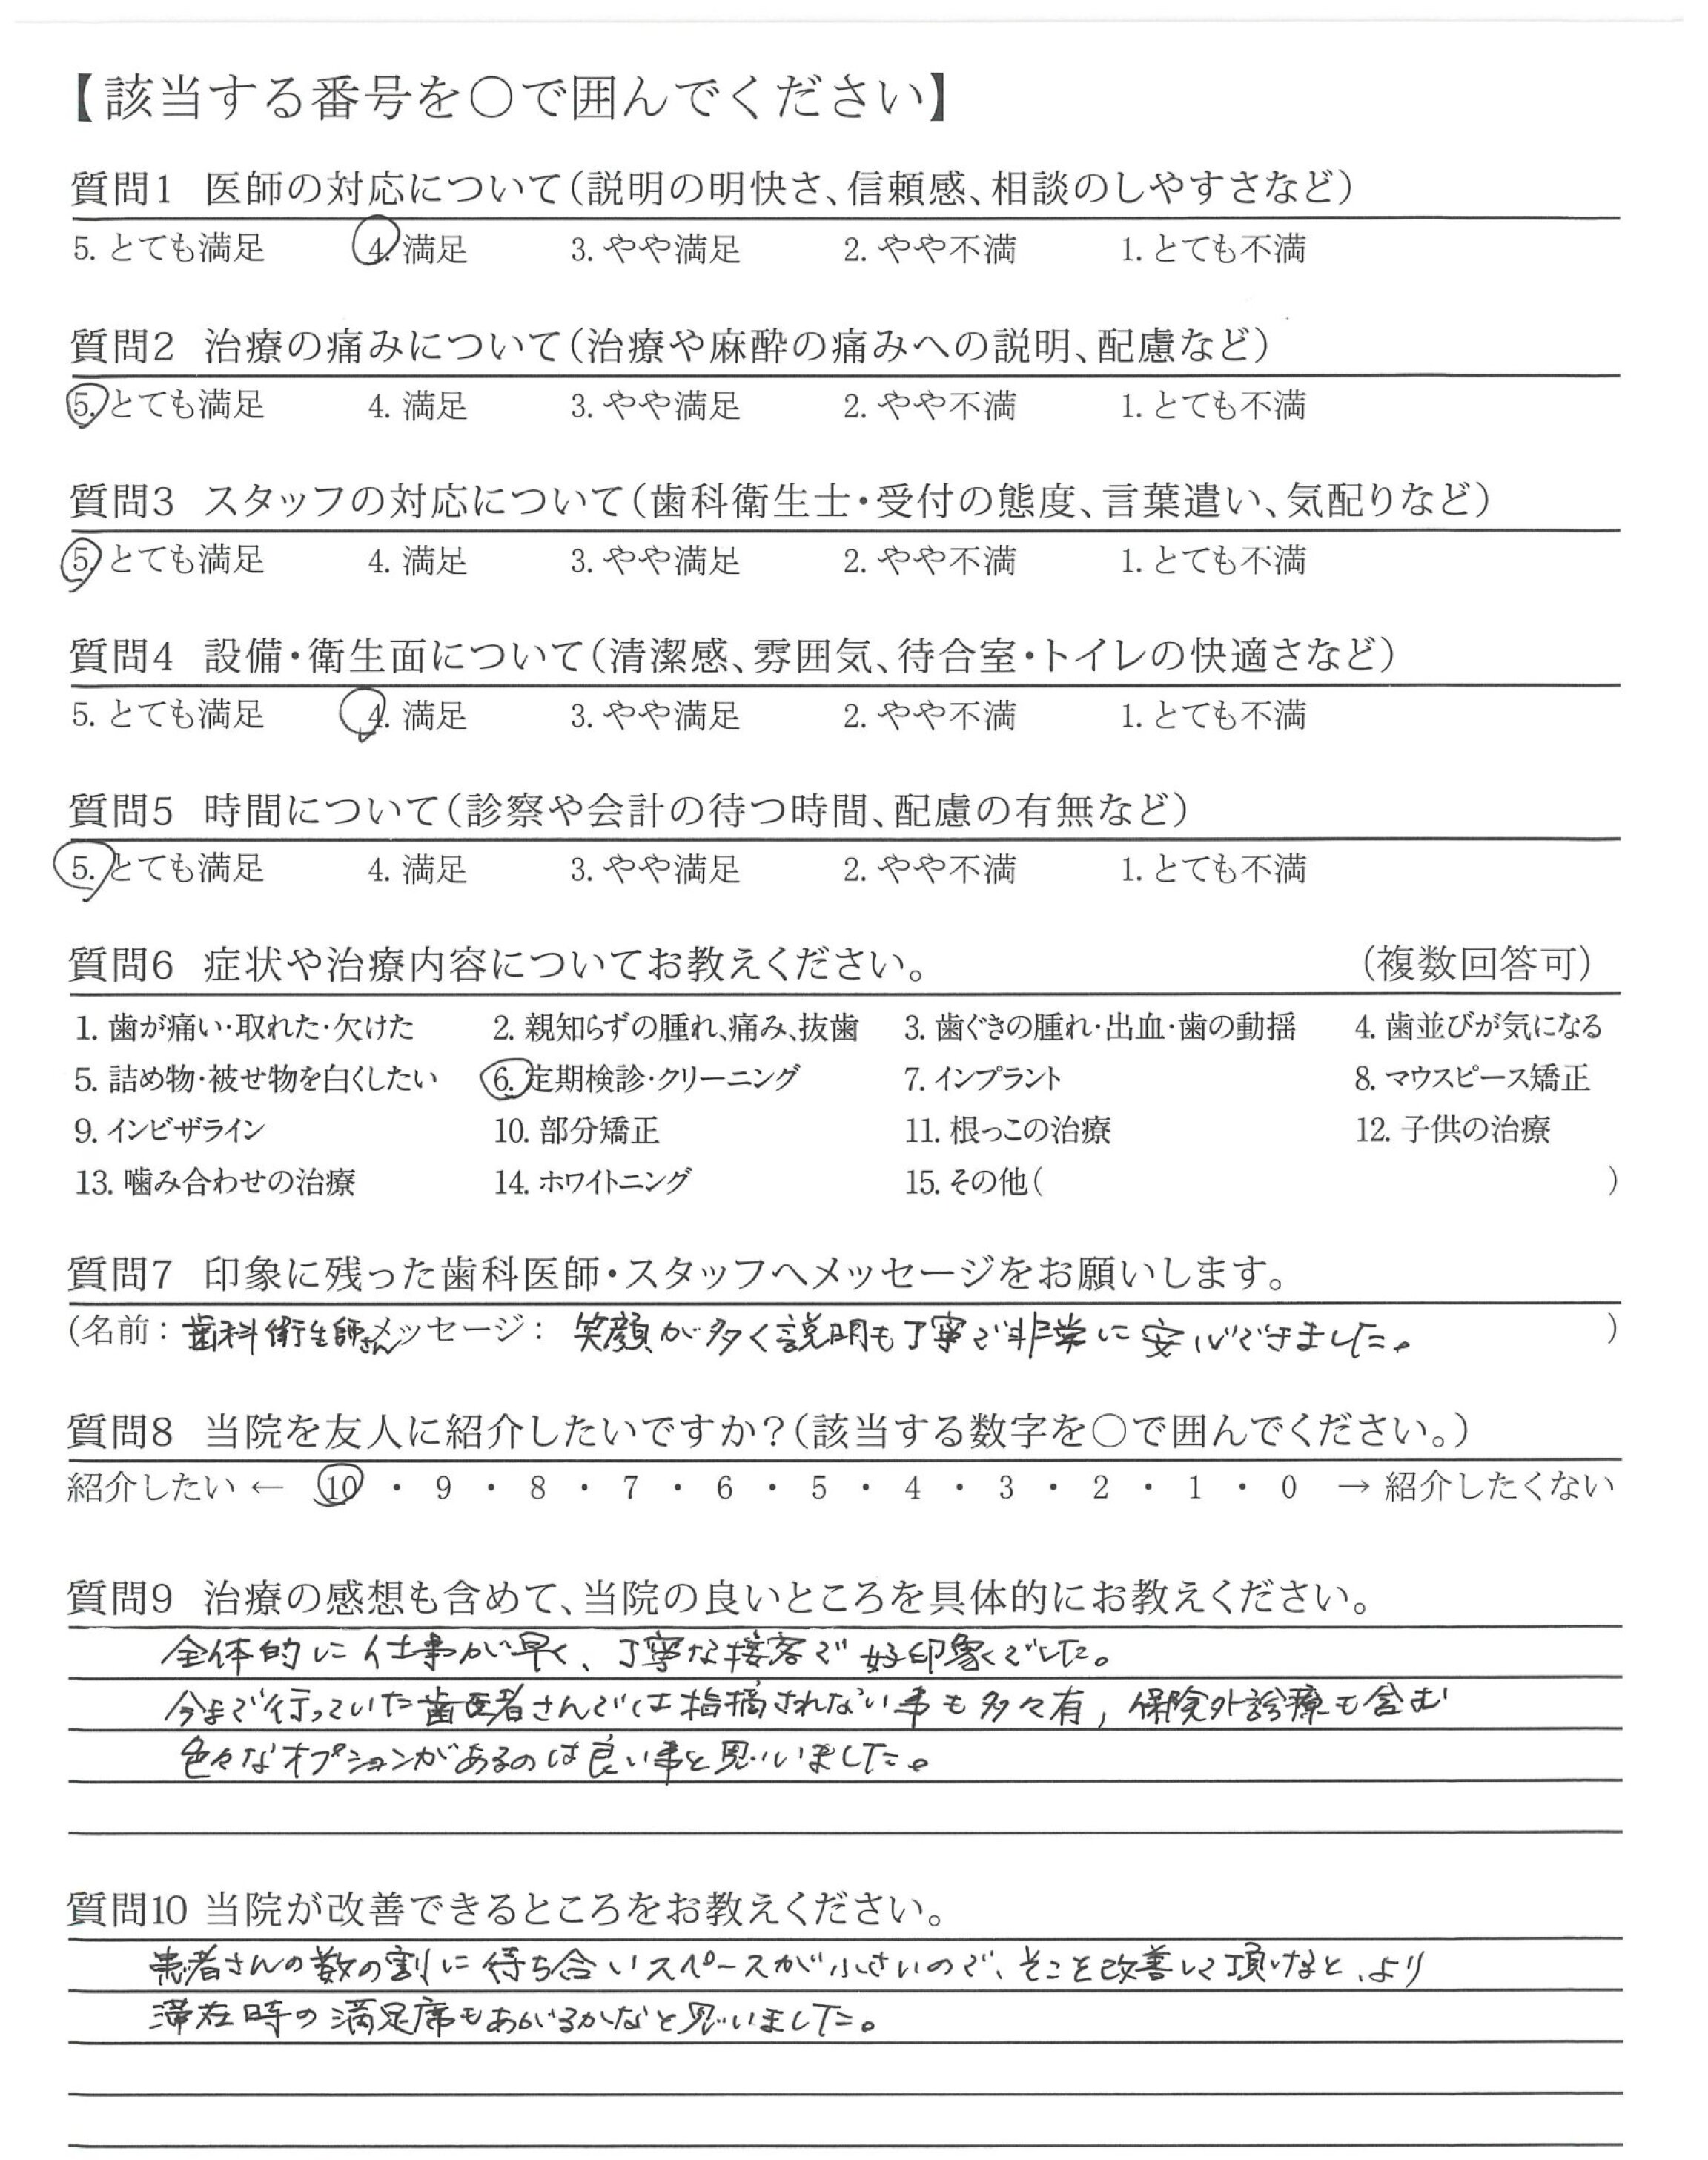 【該当する番号を○で囲んでください】
質問1 医師の対応について(説明の明快さ、信頼感、相談のしやすさなど)
5. とても満足 4. 満足 3. やや満足 2. やや不満 1. とても不満
質問2 治療の痛みについて(治療や麻酔の痛みへの説明、配慮など)
5. とても満足 4. 満足 3. やや満足 2. やや不満 1. とても不満
質問3 スタッフの対応について(歯科衛生士・受付の態度、言葉遣い、気配りなど)
5. とても満足 4. 満足 3. やや満足 2. やや不満 1. とても不満
質問4 設備・衛生面について(清潔感、雰囲気、待合室・トイレの快適さなど)
5. とても満足 4. 満足 3. やや満足 2. やや不満 1. とても不満
質問5 時間について(診察や会計の待つ時間、配慮の有無など)
5. とても満足 4. 満足 3. やや満足 2. やや不満 1. とても不満
質問6 症状や治療内容についてお教えください。 (複数回答可)
1. 歯が痛い・取れた・欠けた 2. 親知らずの腫れ、痛み、抜歯 3. 歯ぐきの腫れ・出血・歯の動揺 4. 歯並びが気になる
5. 詰め物・被せ物を白くしたい 6. 定期検診・クリーニング 7. インプラント 8. マウスピース矯正
9. インビザライン 10. 部分矯正 11. 根っこの治療 12. 子供の治療
13. 噛み合わせの治療 14. ホワイトニング 15. その他( )
質問7 印象に残った歯科医師・スタッフへメッセージをお願いします。
(名前：歯科衛生師さん メッセージ：笑顔が多く説明も丁寧で非常に安心できました。 )
質問8 当院を友人に紹介したいですか?(該当する数字を○で囲んでください。)
紹介したい ← 10 ・ 9 ・ 8 ・ 7 ・ 6 ・ 5 ・ 4 ・ 3 ・ 2 ・ 1 ・ 0 → 紹介したくない
質問9 治療の感想も含めて、当院の良いところを具体的にお教えください。
全体的に仕事が早く、丁寧な接客で好印象でした。
今まで行っていた歯医者さんでは指摘されない事も多々有, 保険外診療も含む
色々なオプションがあるのは良い事と思いました。
質問10 当院が改善できるところをお教えください。
患者さんの数の割に待ち合いスペースが小さいので、そこを改善して頂けると、より
滞在時の満足席もあがるかなと思いました。